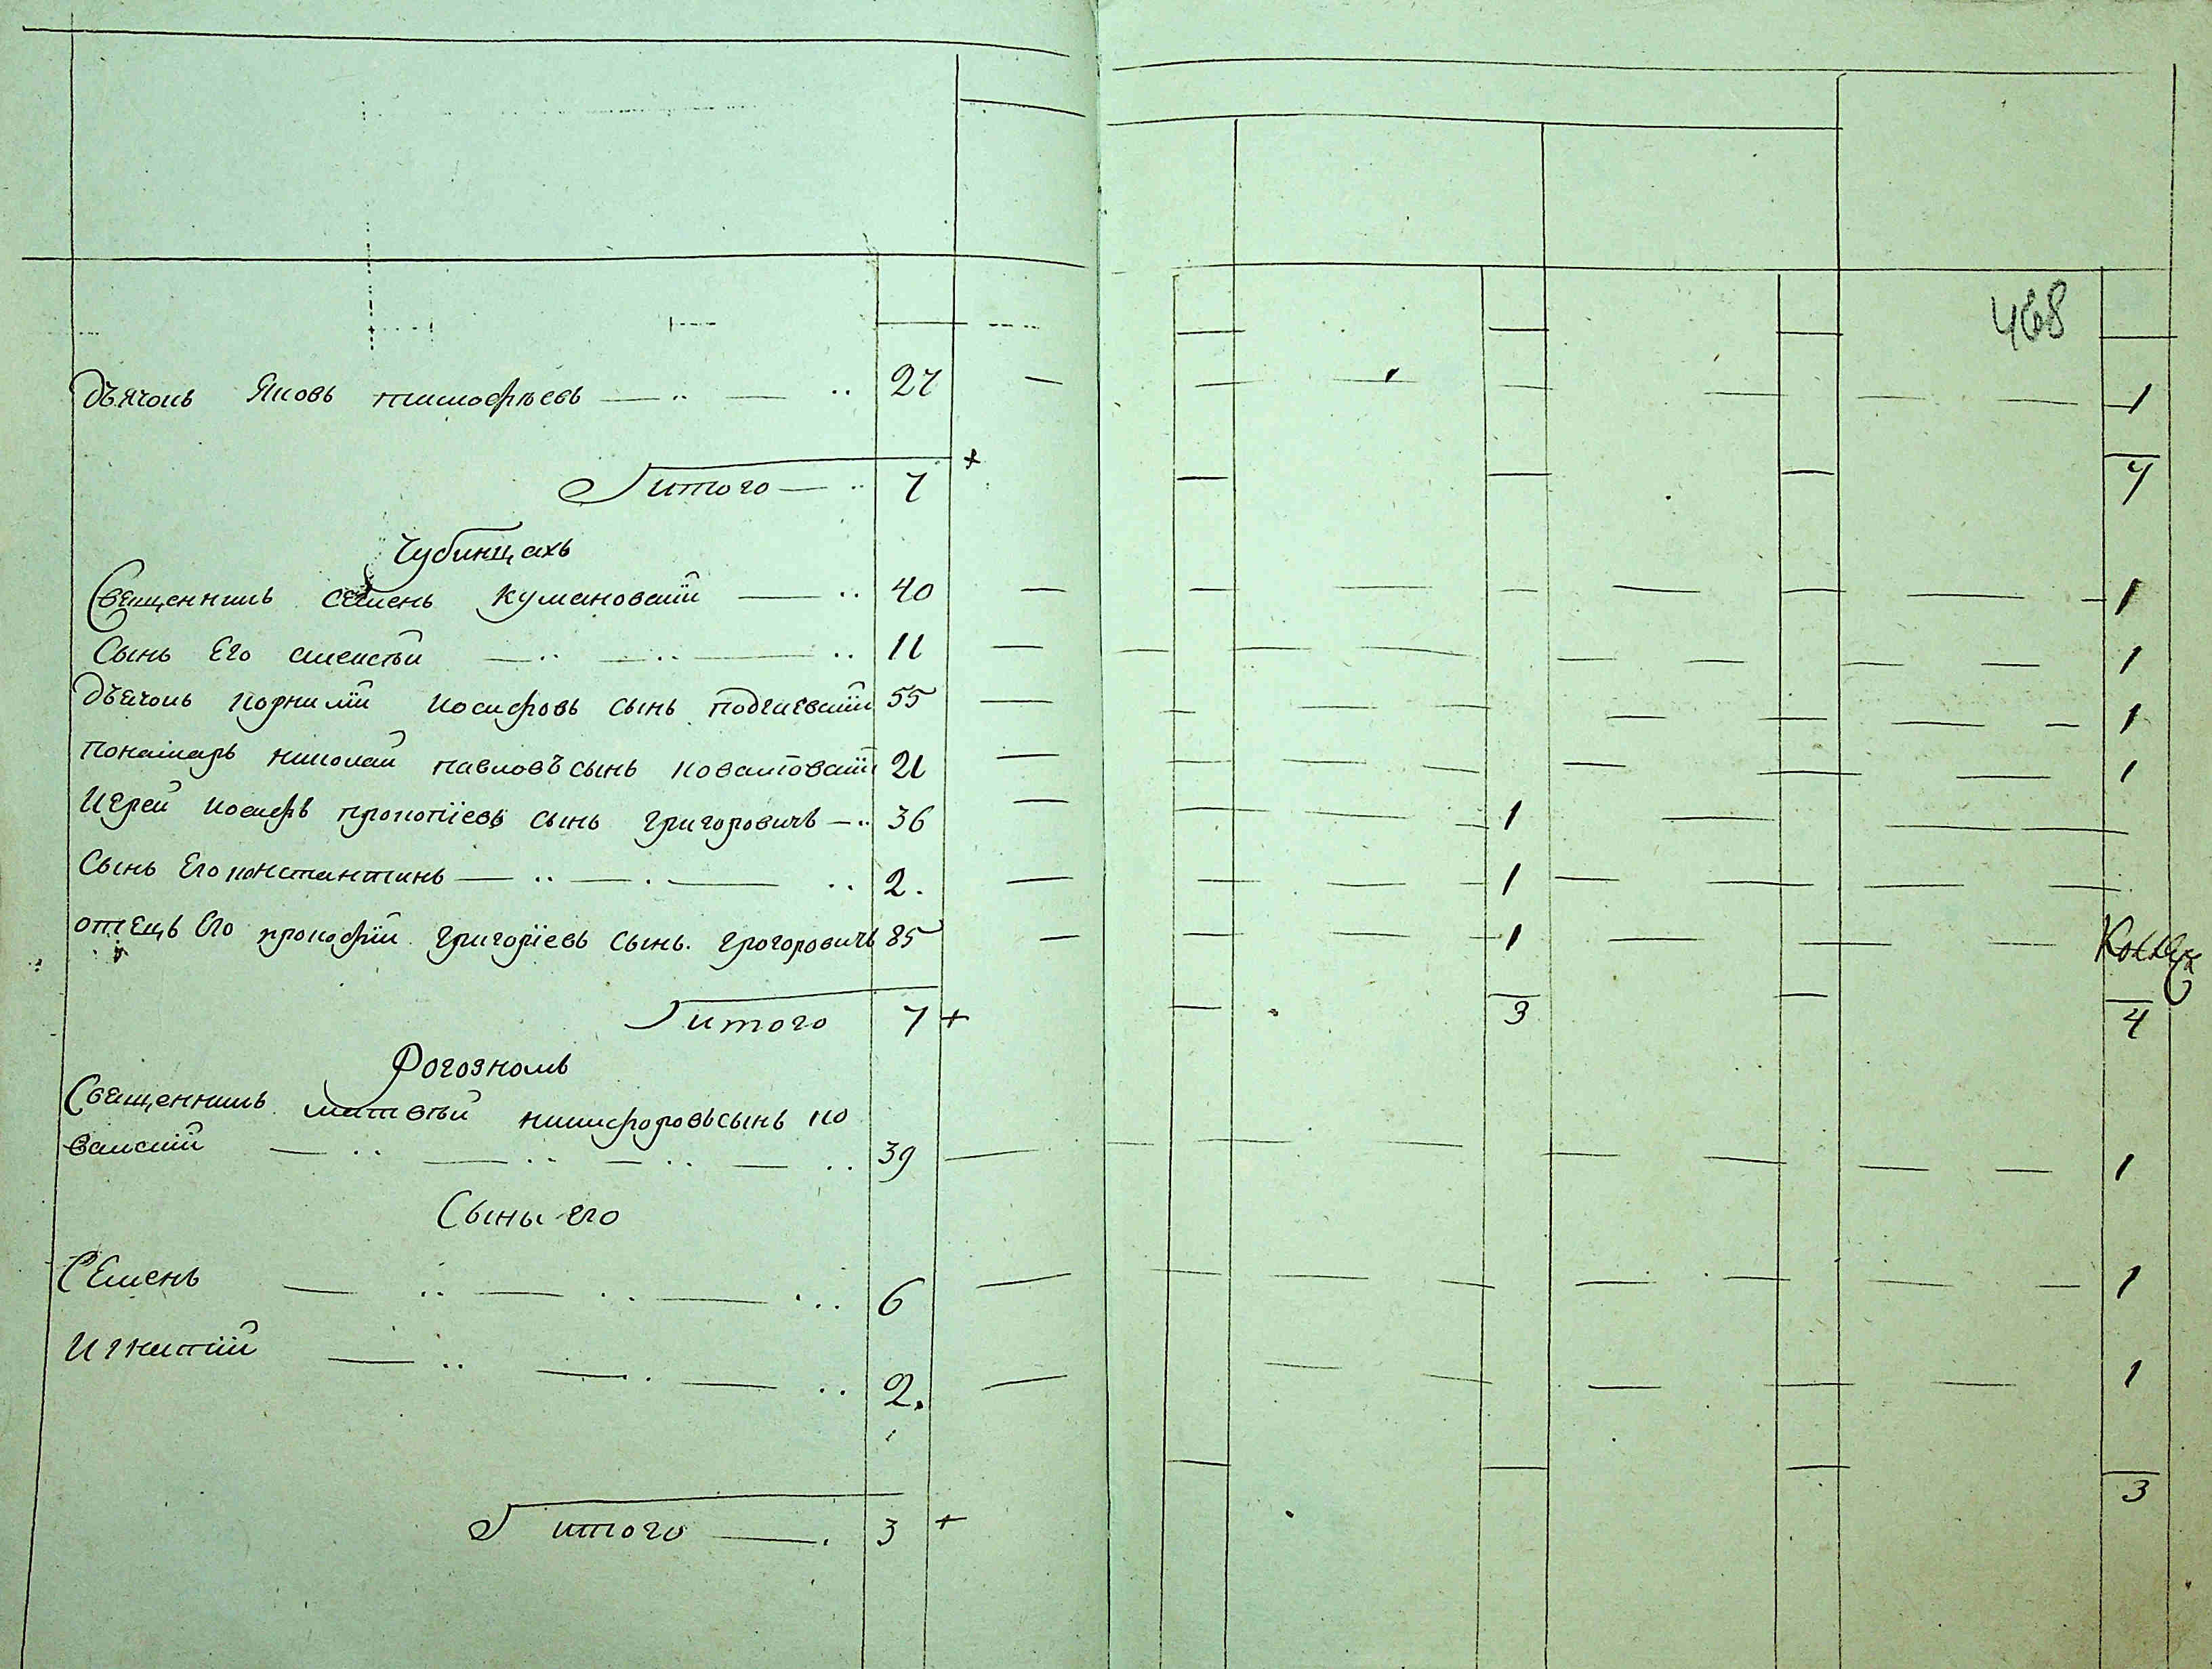 468
дьячокъ Яковъ тимофѣевъ 27 1
итого 7 7
Чубинцахъ
Священникъ семенъ кумановскїй 40 1
Сынъ Его алексѣй 11 1
дьячокъ корнилїй иосифовъ сынъ 55 1
понамарь николай павловъ сынъ 21 1
Иерей иосифъ прокопїевъ сынъ григоровичъ 36 1
Сынъ Его константинъ 2. 1
отецъ Его прокофїй григорїевъ сынъ грогоровичъ 85 1
итого 7 3 4
Рогозномъ
Священникъ матвѣй никифоровъ сынъ ко
валскїй 39 1
Сыны его
СЕменъ 6 1
Игнатїй 2. 1
итого 3 3